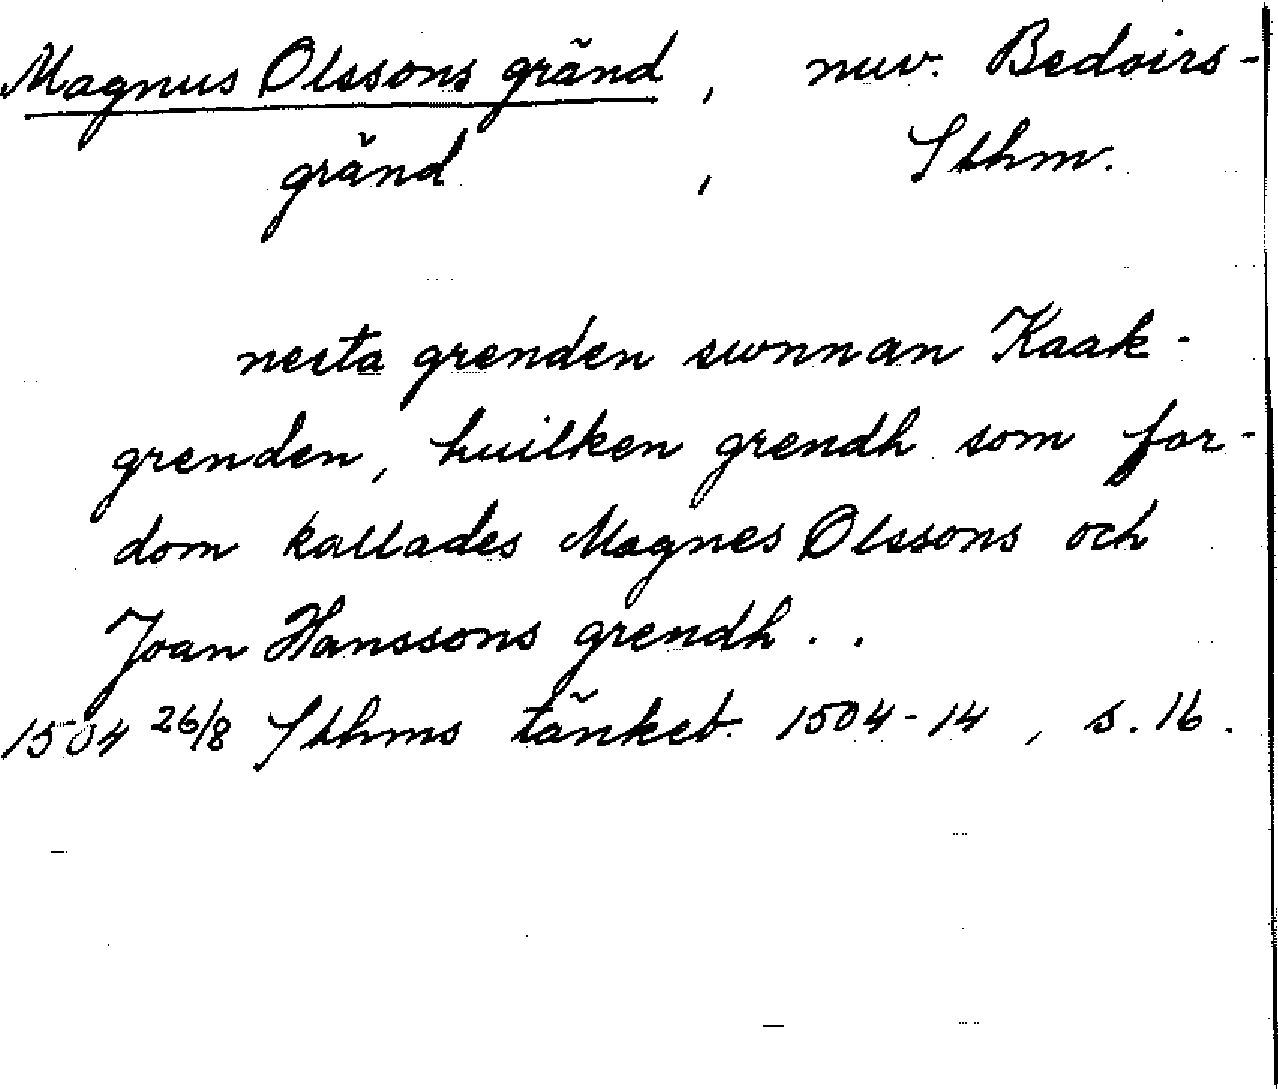 Magnus Olssons gränd, nuv. Bedoirs-
gränd, Sthm.
nesta grenden swnnan Kaak-
grenden, huilken grendh som for-
dom kallades Magnes Olssons och
Joan Hanssons grendh . .
1504 26/8 Sthms tänkeb. 1504-14, s. 16.